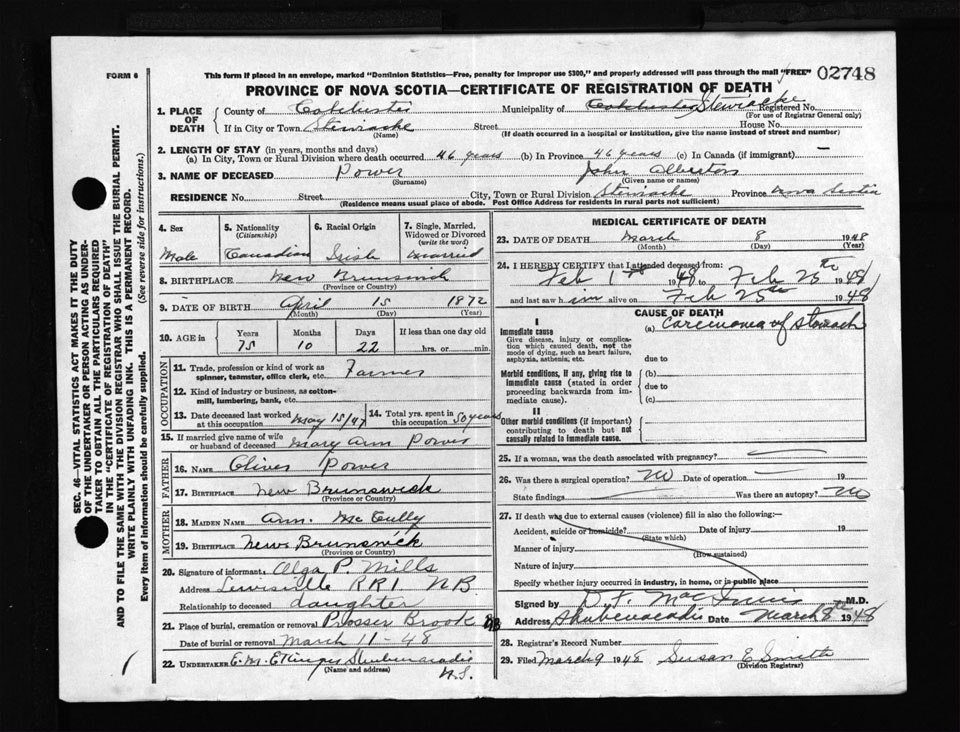 FORM 6
This form if placed in an envelope, marked "Dominion Statistics—Free, penalty for improper use $300," and properly addressed will pass through the mail "FREE"
02748
PROVINCE OF NOVA SCOTIA—CERTIFICATE OF REGISTRATION OF DEATH
1. PLACE OF DEATH
County of Colchester Municipality of Colchester Stewiacke Registered No.
(For use of Registrar General only)
If in City or Town Stewiacke Street House No.
(Name) (If death occurred in a hospital or institution, give the name instead of street and number)
2. LENGTH OF STAY (in years, months and days)
(a) In City, Town or Rural Division where death occurred 46 years (b) In Province 46 years (c) In Canada (if immigrant) —
3. NAME OF DECEASED Power John Alberton
(Surname) (Given name or names)
RESIDENCE No. Street City, Town or Rural Division Stewiacke Province Nova Scotia
(Residence means usual place of abode. Post Office Address for residents in rural parts not sufficient)
SEC. 46—VITAL STATISTICS ACT MAKES IT THE DUTY
OF THE UNDERTAKER OR PERSON ACTING AS UNDER-
TAKER TO OBTAIN ALL THE PARTICULARS REQUIRED
IN THE "CERTIFICATE OF REGISTRATION OF DEATH"
AND TO FILE THE SAME WITH THE DIVISION REGISTRAR WHO SHALL ISSUE THE BURIAL PERMIT.
WRITE PLAINLY WITH UNFADING INK. THIS IS A PERMANENT RECORD.
Every item of information should be carefully supplied. (See reverse side for instructions.)
4. Sex
Male
5. Nationality
(Citizenship)
Canadian
6. Racial Origin
Irish
7. Single, Married,
Widowed or Divorced
(write the word)
Married
8. BIRTHPLACE New Brunswick
(Province or Country)
9. DATE OF BIRTH April 15 1872
(Month) (Day) (Year)
10. AGE in Years Months Days If less than one day old
75 10 22 hrs. or min.
OCCUPATION
11. Trade, profession or kind of work as
spinner, teamster, office clerk, etc. Farmer
12. Kind of industry or business, as cotton-
mill, lumbering, bank, etc.
13. Date deceased last worked
at this occupation May 15/47
14. Total yrs. spent in
this occupation 50 years
15. If married give name of wife
or husband of deceased Mary Ann Power
FATHER
16. NAME Oliver Power
17. BIRTHPLACE New Brunswick
(Province or Country)
MOTHER
18. MAIDEN NAME Ann. McCully
19. BIRTHPLACE New Brunswick
(Province or Country)
20. Signature of informant Olga P. Mills
Address Lewisville RR1 NB
Relationship to deceased daughter
21. Place of burial, cremation or removal Prosser Brook NB
Date of burial or removal March 11-48
22. UNDERTAKER E.M. Shubenacadie
(Name and address) N.S.
MEDICAL CERTIFICATE OF DEATH
23. DATE OF DEATH March 8 1948
(Month) (Day) (Year)
24. I HEREBY CERTIFY that I attended deceased from:
Feb 1st 1948 to Feb 25th 1948
and last saw him alive on Feb 25th 1948
CAUSE OF DEATH
I
Immediate cause
Give disease, injury or complica-
tion which caused death, not the
mode of dying, such as heart failure,
asphyxia, asthenia, etc.
(a) Carcinoma of Stomach
due to
Morbid conditions, if any, giving rise to
immediate cause (stated in order
proceeding backwards from im-
mediate cause).
(b)
due to
(c)
II
Other morbid conditions (if important)
contributing to death but not
causally related to immediate cause.
25. If a woman, was the death associated with pregnancy? —
26. Was there a surgical operation? No Date of operation — 19
State findings — Was there an autopsy? No
27. If death was due to external causes (violence) fill in also the following:—
Accident, suicide or homicide? Date of injury 19
(State which)
Manner of injury
(How sustained)
Nature of injury
Specify whether injury occurred in industry, in home, or in public place
Signed by D.F. MacInnis M.D.
Address Shubenacadie Date March 8th 1948
28. Registrar's Record Number
29. Filed March 9 1948 Susan E. Smith
(Division Registrar)